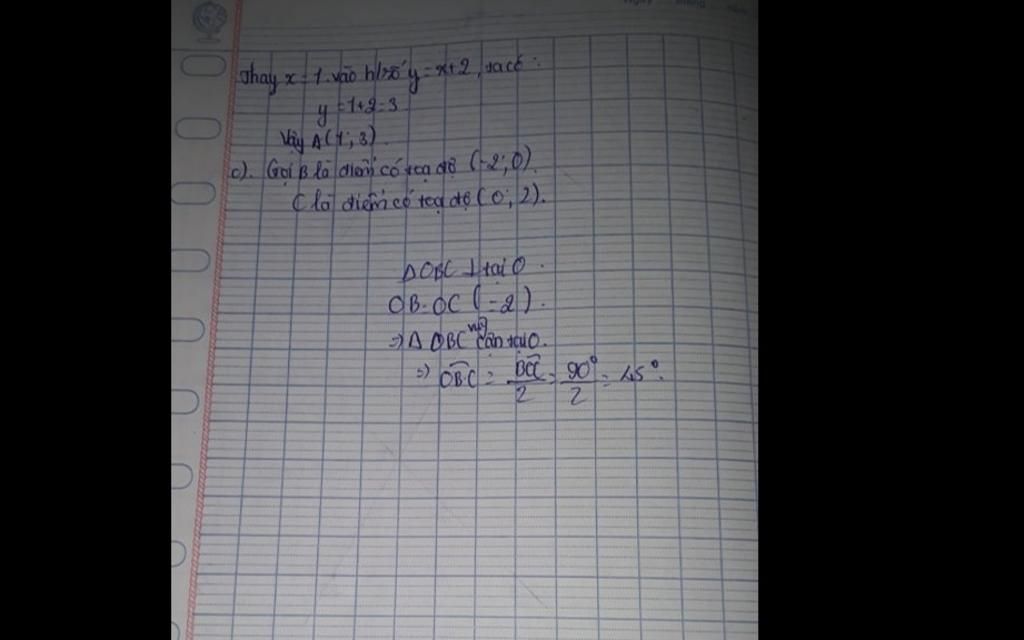 Thay x = 1 vào h/số y = x+2, ta có :
y = 1+2=3
Vậy A(1; 3)
c). Gọi B là điểm có toạ độ (-2; 0)
C là điểm có toạ độ (0; 2).
Δ OBC ⊥ tại O.
OB = OC (=2).
⇒ Δ OBC vuông cân tại O.
⇒ OBC = BOC/2 = 90°/2 = 45°.